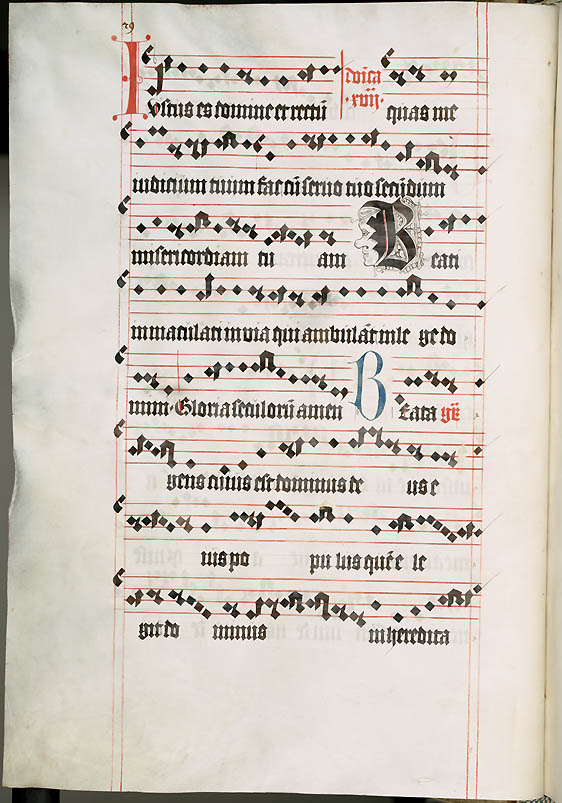 Iustus es domine et rectū dnīca xvij. quas me
iudicium tuum fac cū servo tuo secundum
misericordiam tu am Beati
inmaculati in via qui ambulāt in le ge do
mini. Gloria seculorū amen Beata gr̄
gens cuius est dominus de us e
ius po pu lus quē e le
git do minus in heredita